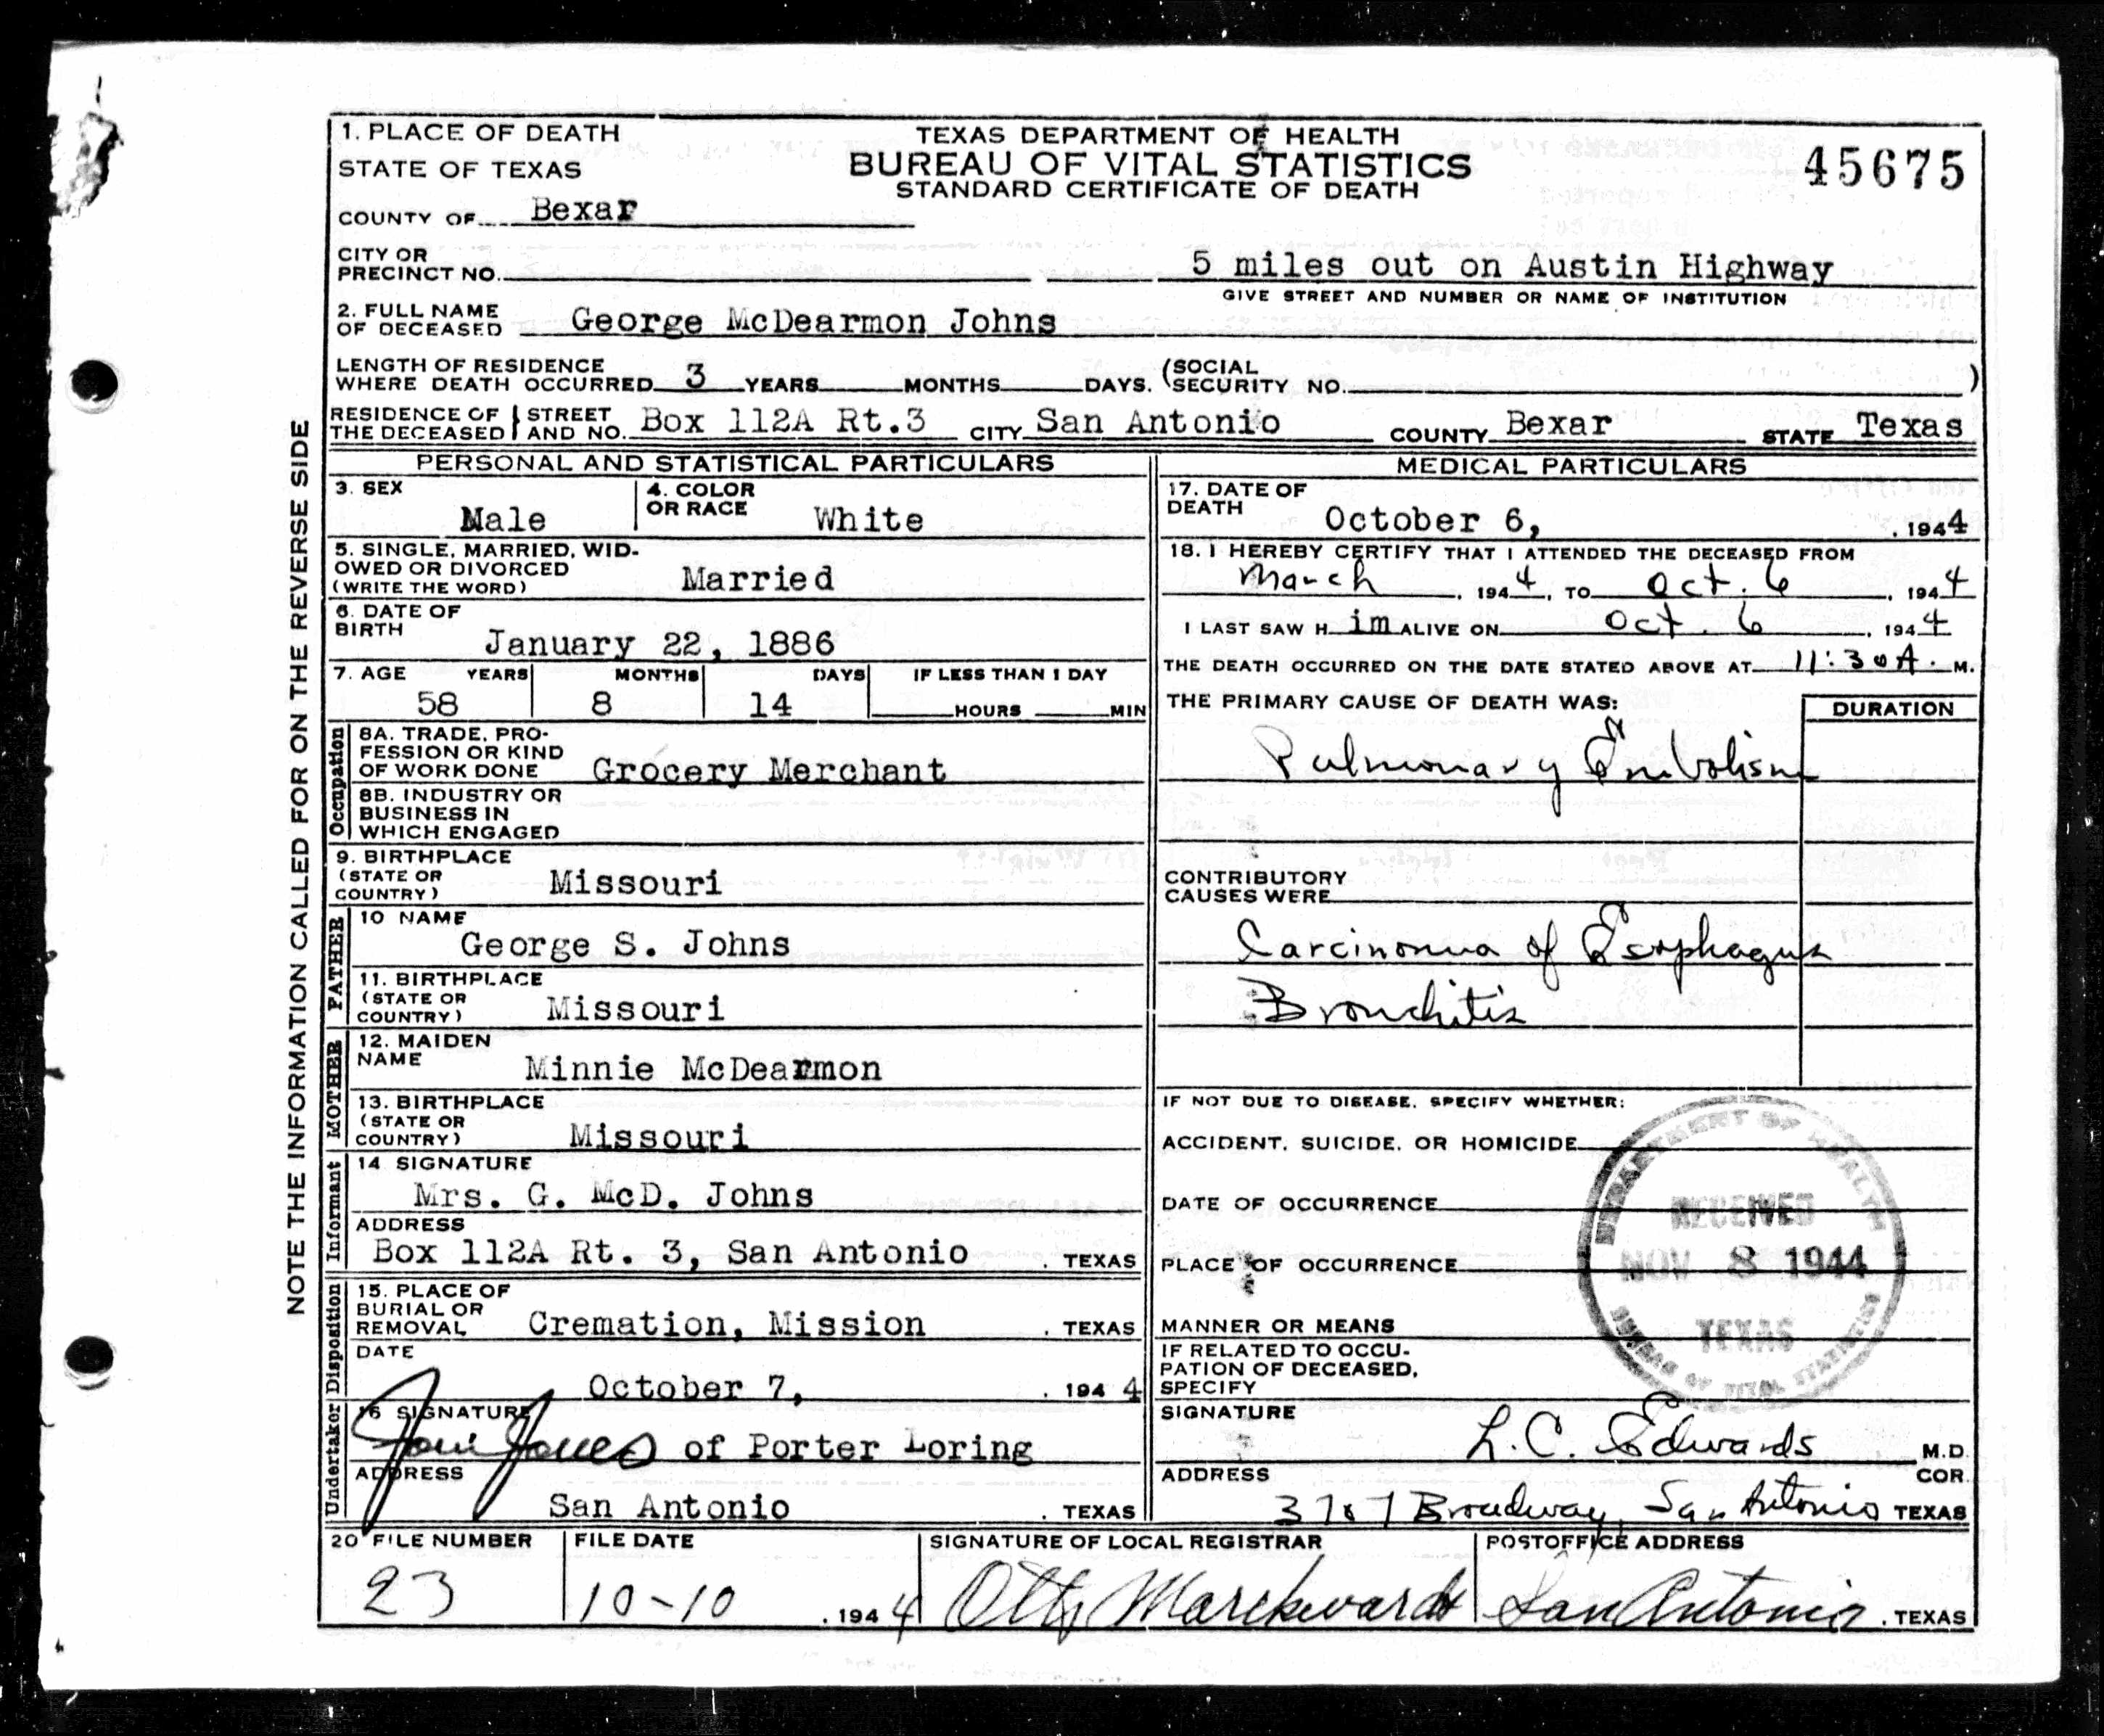 1. PLACE OF DEATH
STATE OF TEXAS
COUNTY OF Bexar
TEXAS DEPARTMENT OF HEALTH
BUREAU OF VITAL STATISTICS
STANDARD CERTIFICATE OF DEATH
45675
CITY OR
PRECINCT NO. 5 miles out on Austin Highway
GIVE STREET AND NUMBER OR NAME OF INSTITUTION
2. FULL NAME
OF DECEASED George McDearmon Johns
LENGTH OF RESIDENCE
WHERE DEATH OCCURRED 3 YEARS MONTHS DAYS. (SOCIAL SECURITY NO. )
RESIDENCE OF THE DECEASED STREET AND NO. Box 112A Rt.3 CITY San Antonio COUNTY Bexar STATE Texas
NOTE THE INFORMATION CALLED FOR ON THE REVERSE SIDE
PERSONAL AND STATISTICAL PARTICULARS
3. SEX Male
4. COLOR OR RACE White
5. SINGLE, MARRIED, WID-
OWED OR DIVORCED
(WRITE THE WORD) Married
6. DATE OF
BIRTH January 22, 1886
7. AGE YEARS MONTHS DAYS IF LESS THAN 1 DAY
58 8 14 HOURS MIN
Occupation
8A. TRADE, PRO-
FESSION OR KIND
OF WORK DONE Grocery Merchant
8B. INDUSTRY OR
BUSINESS IN
WHICH ENGAGED
9. BIRTHPLACE
(STATE OR
COUNTRY) Missouri
FATHER
10 NAME
George S. Johns
11. BIRTHPLACE
(STATE OR
COUNTRY) Missouri
MOTHER
12. MAIDEN
NAME Minnie McDearmon
13. BIRTHPLACE
(STATE OR
COUNTRY) Missouri
Informant
14 SIGNATURE
Mrs. G. McD. Johns
ADDRESS
Box 112A Rt. 3, San Antonio . TEXAS
Disposition
15. PLACE OF
BURIAL OR
REMOVAL Cremation, Mission . TEXAS
DATE
October 7, . 194 4
Undertaker
16 SIGNATURE
of Porter Loring
ADDRESS
San Antonio . TEXAS
MEDICAL PARTICULARS
17. DATE OF
DEATH October 6, . 1944
18. I HEREBY CERTIFY THAT I ATTENDED THE DECEASED FROM
March , 194 4, TO Oct. 6 , 194 4
I LAST SAW H im ALIVE ON Oct. 6 , 194 4
THE DEATH OCCURRED ON THE DATE STATED ABOVE AT 11:30 A. M.
THE PRIMARY CAUSE OF DEATH WAS: DURATION
Pulmonary Embolism
CONTRIBUTORY
CAUSES WERE
Carcinoma of Esophagus
Bronchitis
IF NOT DUE TO DISEASE, SPECIFY WHETHER:
ACCIDENT, SUICIDE, OR HOMICIDE
DATE OF OCCURRENCE
PLACE OF OCCURRENCE
MANNER OR MEANS
IF RELATED TO OCCU-
PATION OF DECEASED,
SPECIFY
DEPARTMENT OF HEALTH
RECEIVED
NOV 8 1944
TEXAS
BUREAU OF VITAL STATISTICS
SIGNATURE L.C. Edwards M.D.
COR.
ADDRESS
Broadway, San Antonio TEXAS
20 FILE NUMBER FILE DATE SIGNATURE OF LOCAL REGISTRAR POSTOFFICE ADDRESS
23 10-10 . 194 4 Otto Marckwardt San Antonio . TEXAS